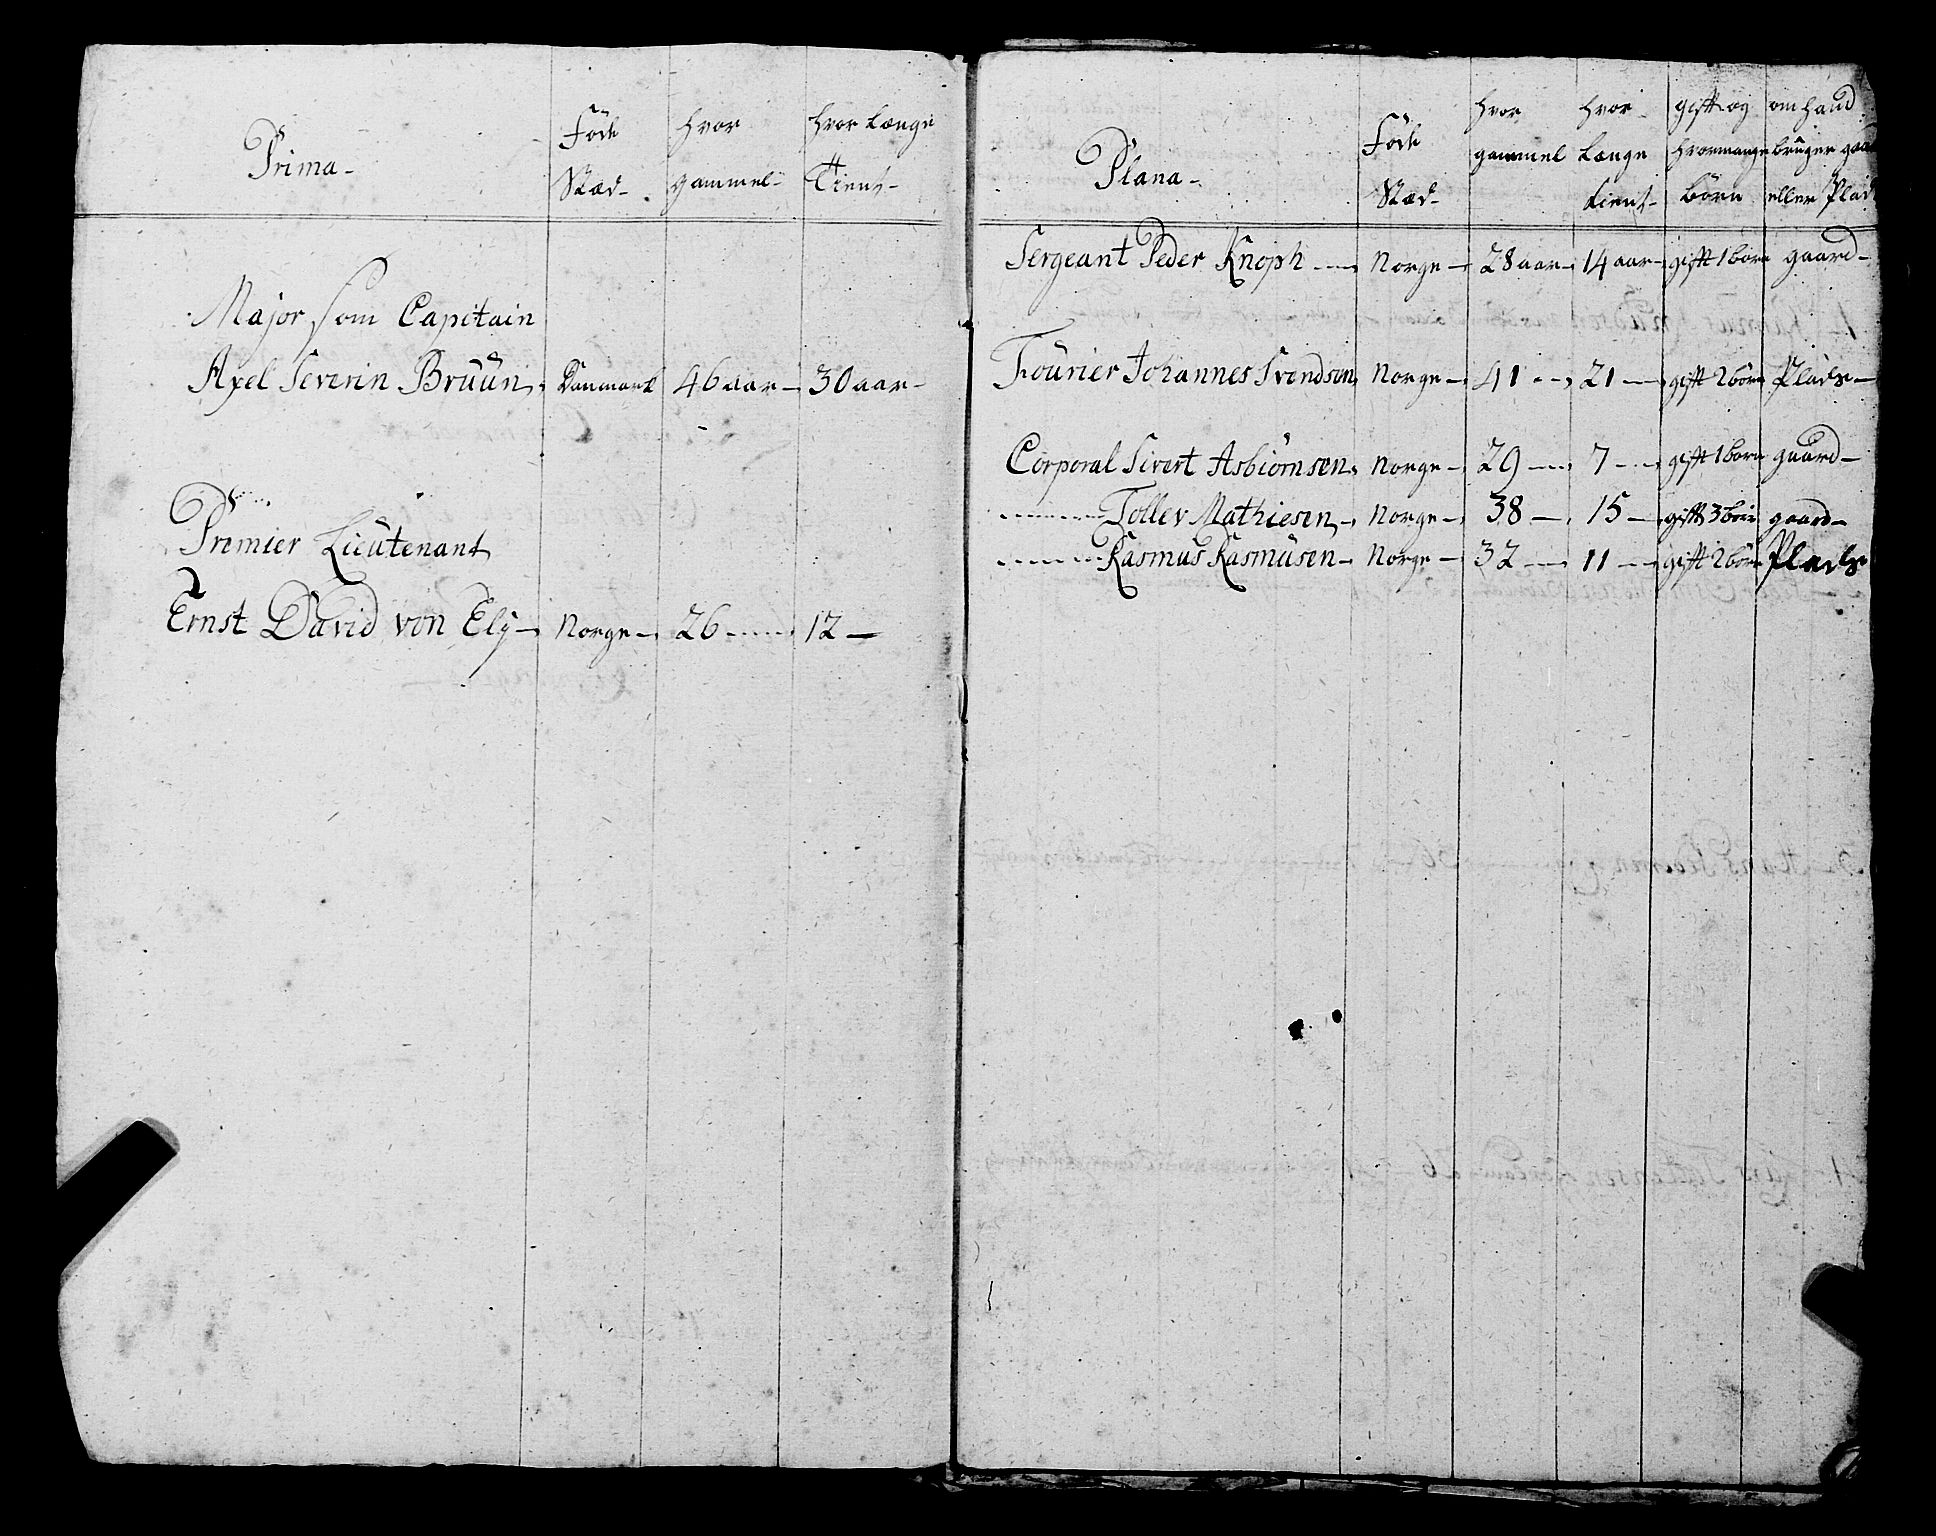 Prima-
Föde Stæd-
hvor gammel-
hvor Længe Tient-
Major som Capitain
Axel Severin Brüün- Danmark 46 aar- 30 aar-
Premier Lieütenant
Ernst David von Ely- Norge- 26 --- 12-
Plana-
Föde Stæd-
hvor gammel
hvor Længe tient-
gift og hvormange börn
om hand brüger gaard eller Plads
Sergeant Peder Knoph --- Norge- 28 aar- 14 aar- gift 1 born gaard-
Foürier Johannes Svendsen Norge- 41 -- 21 -- gift 2 börn Plads-
Corporal Sivert Asbiörnsen Norge- 29 -- 7 -- gift 1 born gaard-
--- Tollev Mathiesen- Norge- 38 - 15 - gift 3 börn gaard-
--- Rasmus Rasmüsen- Norge- 32 -- 11 -- gift 2 börn Plads